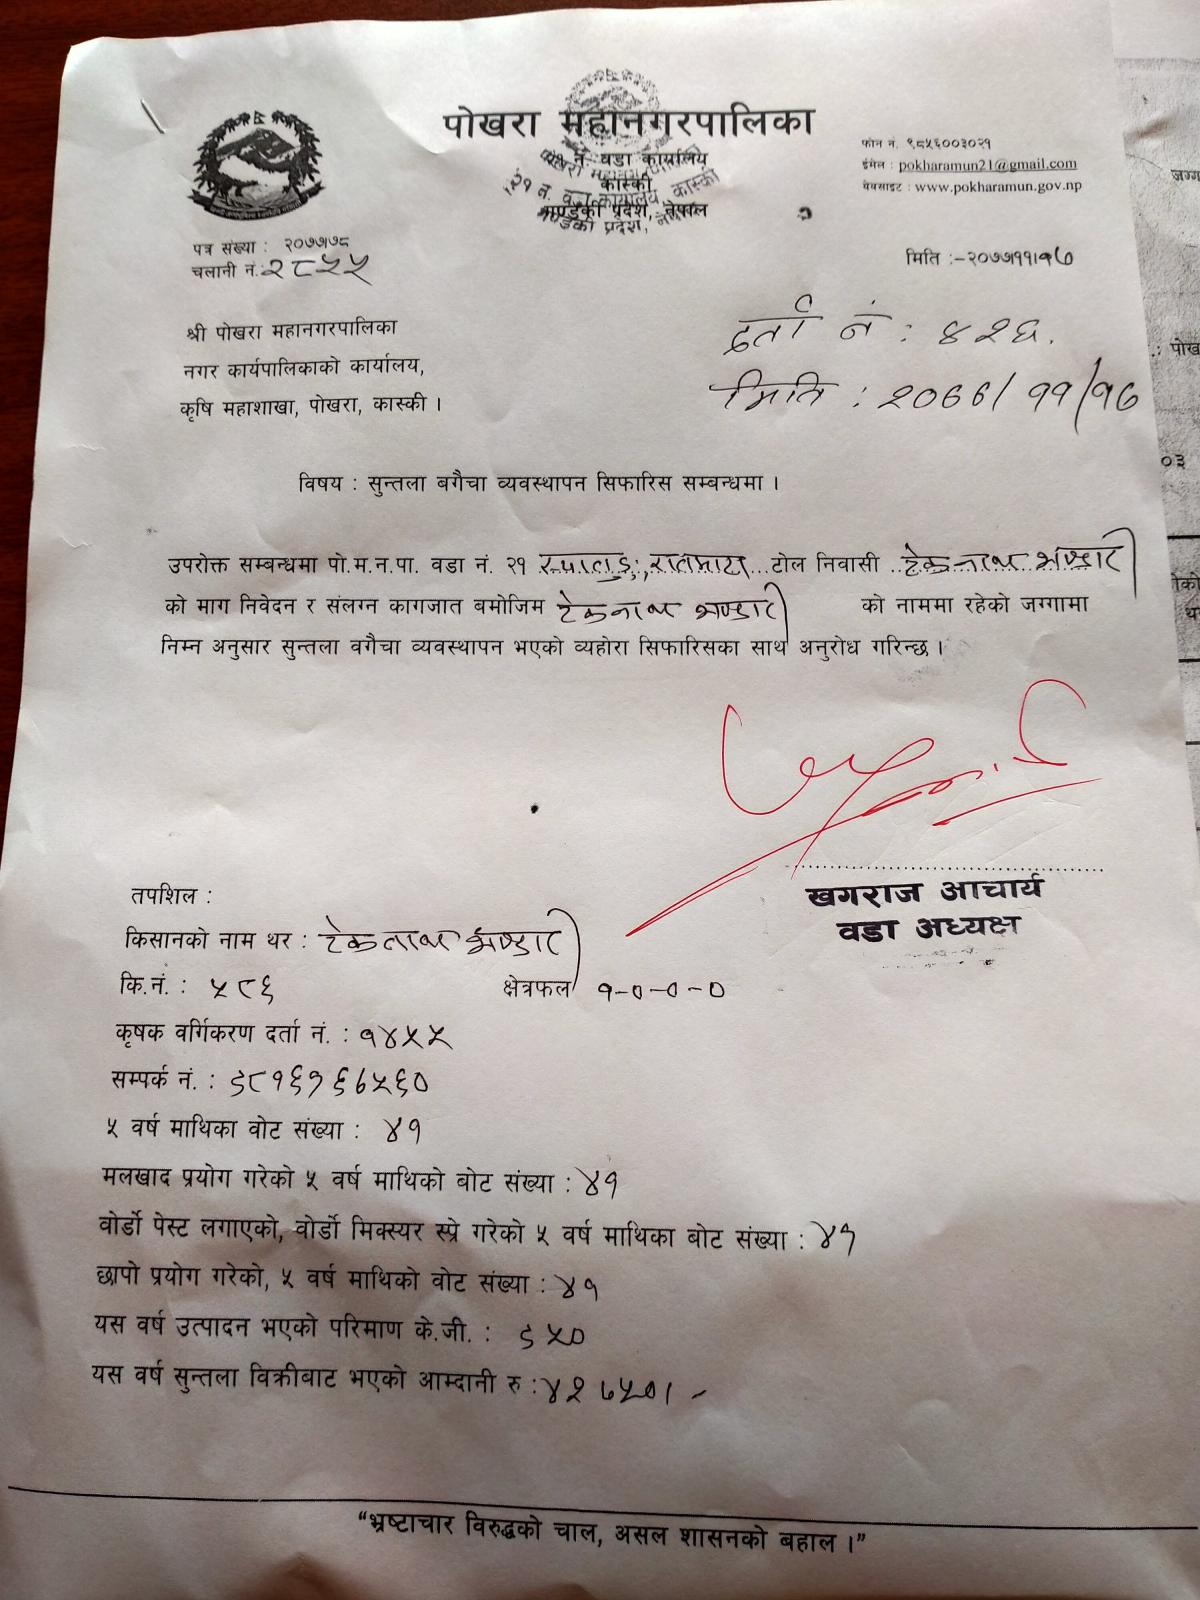 पोखरा महानगरपालिका
२१ नं. वडा कार्यालय
कास्की
गण्डकी प्रदेश, नेपाल
फोन नं. ९८५६००३०२१
ईमेल : pokharamun21@gmail.com
वेवसाइट : www.pokharamun.gov.np
पत्र संख्या : २०७७/७८
चलानी नं.: २८५५
मिति :-२०७७/११/१७
दर्ता नं : ४२६.
मिति : २०७७/११/१७
श्री पोखरा महानगरपालिका
नगर कार्यपालिकाको कार्यालय,
कृषि महाशाखा, पोखरा, कास्की ।
विषय : सुन्तला बगैचा व्यवस्थापन सिफारिस सम्बन्धमा ।
उपरोक्त सम्बन्धमा पो.म.न.पा. वडा नं. २१ रातमाटा टोल निवासी टेकनाथ भण्डारी
को माग निवेदन र संलग्न कागजात बमोजिम टेकनाथ भण्डारी को नाममा रहेको जग्गामा
निम्न अनुसार सुन्तला वगैचा व्यवस्थापन भएको व्यहोरा सिफारिसका साथ अनुरोध गरिन्छ ।
खगराज आचार्य
वडा अध्यक्ष
तपशिल :
किसानको नाम थर : टेकनाथ भण्डारी
कि.नं. : ५८६ क्षेत्रफल १-०-०-०
कृषक वर्गिकरण दर्ता नं. : १४५५
सम्पर्क नं. : ९८१६१६७५६०
५ वर्ष माथिका वोट संख्या : ४१
मलखाद प्रयोग गरेको ५ वर्ष माथिको बोट संख्या : ४१
वोर्डो पेस्ट लगाएको, वोर्डो मिक्स्चर स्प्रे गरेको ५ वर्ष माथिका बोट संख्या : ४१
छापो प्रयोग गरेको, ५ वर्ष माथिको वोट संख्या : ४१
यस वर्ष उत्पादन भएको परिमाण के.जी. : ९५०
यस वर्ष सुन्तला विक्रीबाट भएको आम्दानी रु : ४२७५०।-
“भ्रष्टाचार विरुद्धको चाल, असल शासनको बहाल ।”